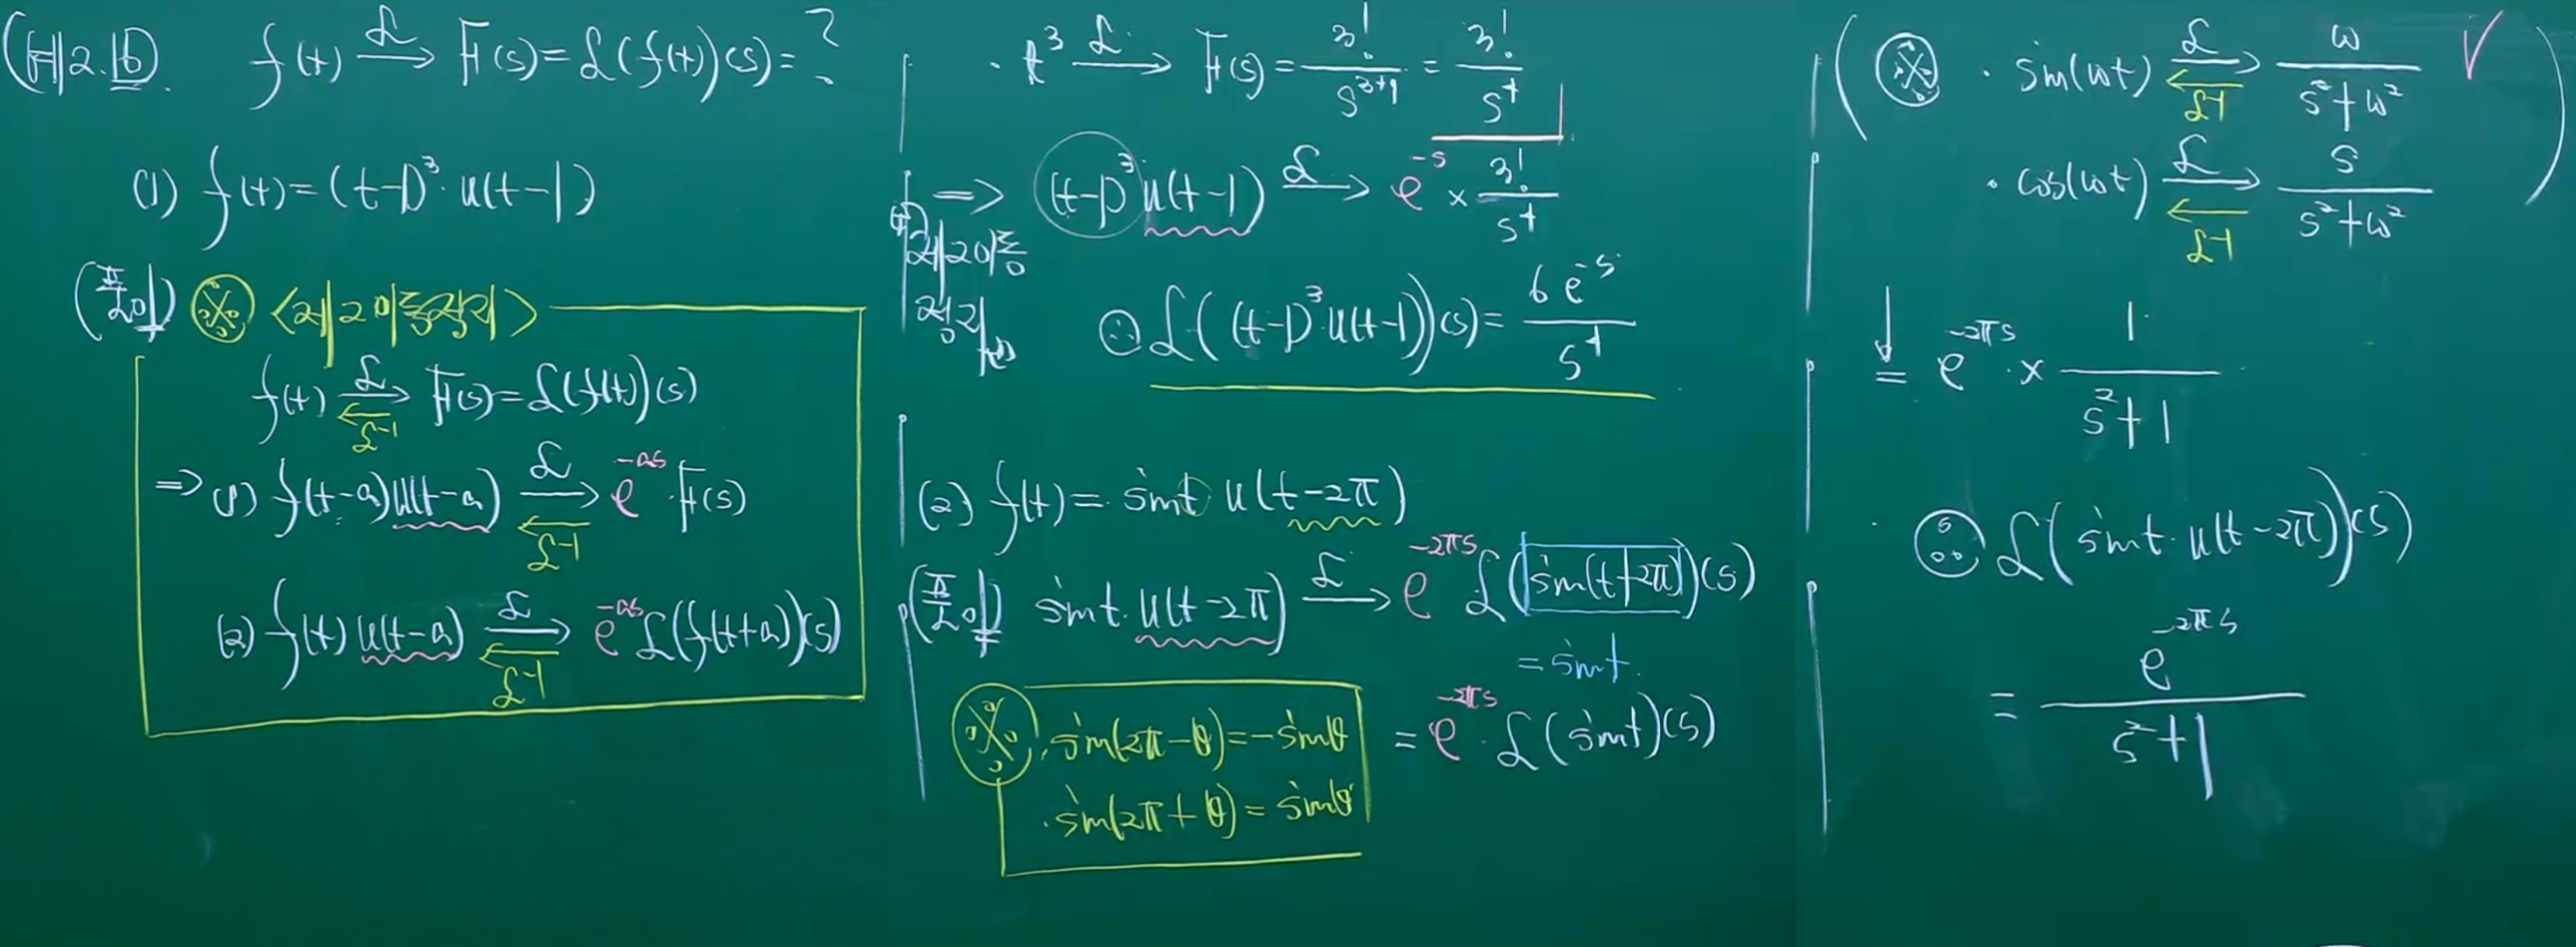 (예제2.16). f(t) ℒ→ F(s)=ℒ(f(t))(s)=?
(1) f(t)=(t-1)³·u(t-1)
(풀이) ※ <제2이동정리>
f(t) ℒ→ ←ℒ⁻¹ F(s)=ℒ(f(t))(s)
⇒ (1) f(t-a)u(t-a) ℒ→ ←ℒ⁻¹ e^{-as}·F(s)
(2) f(t)u(t-a) ℒ→ ←ℒ⁻¹ e^{-as}ℒ(f(t+a))(s)
· t³ ℒ→ F(s)=3!/s^{3+1}=3!/s⁴
⇒ (t-1)³u(t-1) ℒ→ e^{-s}×3!/s⁴
제2이동
정리
∴ ℒ((t-1)³u(t-1))(s)=6e^{-s}/s⁴
(2) f(t)=sint u(t-2π)
(풀이) sint·u(t-2π) ℒ→ e^{-2πs}ℒ(sin(t+2π))(s)
=sint.
=e^{-2πs}·ℒ(sint)(s)
※ ·sin(2π-θ)=-sinθ
·sin(2π+θ)=sinθ
(※ ·sin(ωt) ℒ→ ←ℒ⁻¹ ω/(s²+ω²) ✓
·cos(ωt) ℒ→ ←ℒ⁻¹ s/(s²+ω²))
↓
= e^{-2πs}·×1/(s²+1)
∴ ℒ(sint·u(t-2π))(s)
= e^{-2πs}/(s²+1)